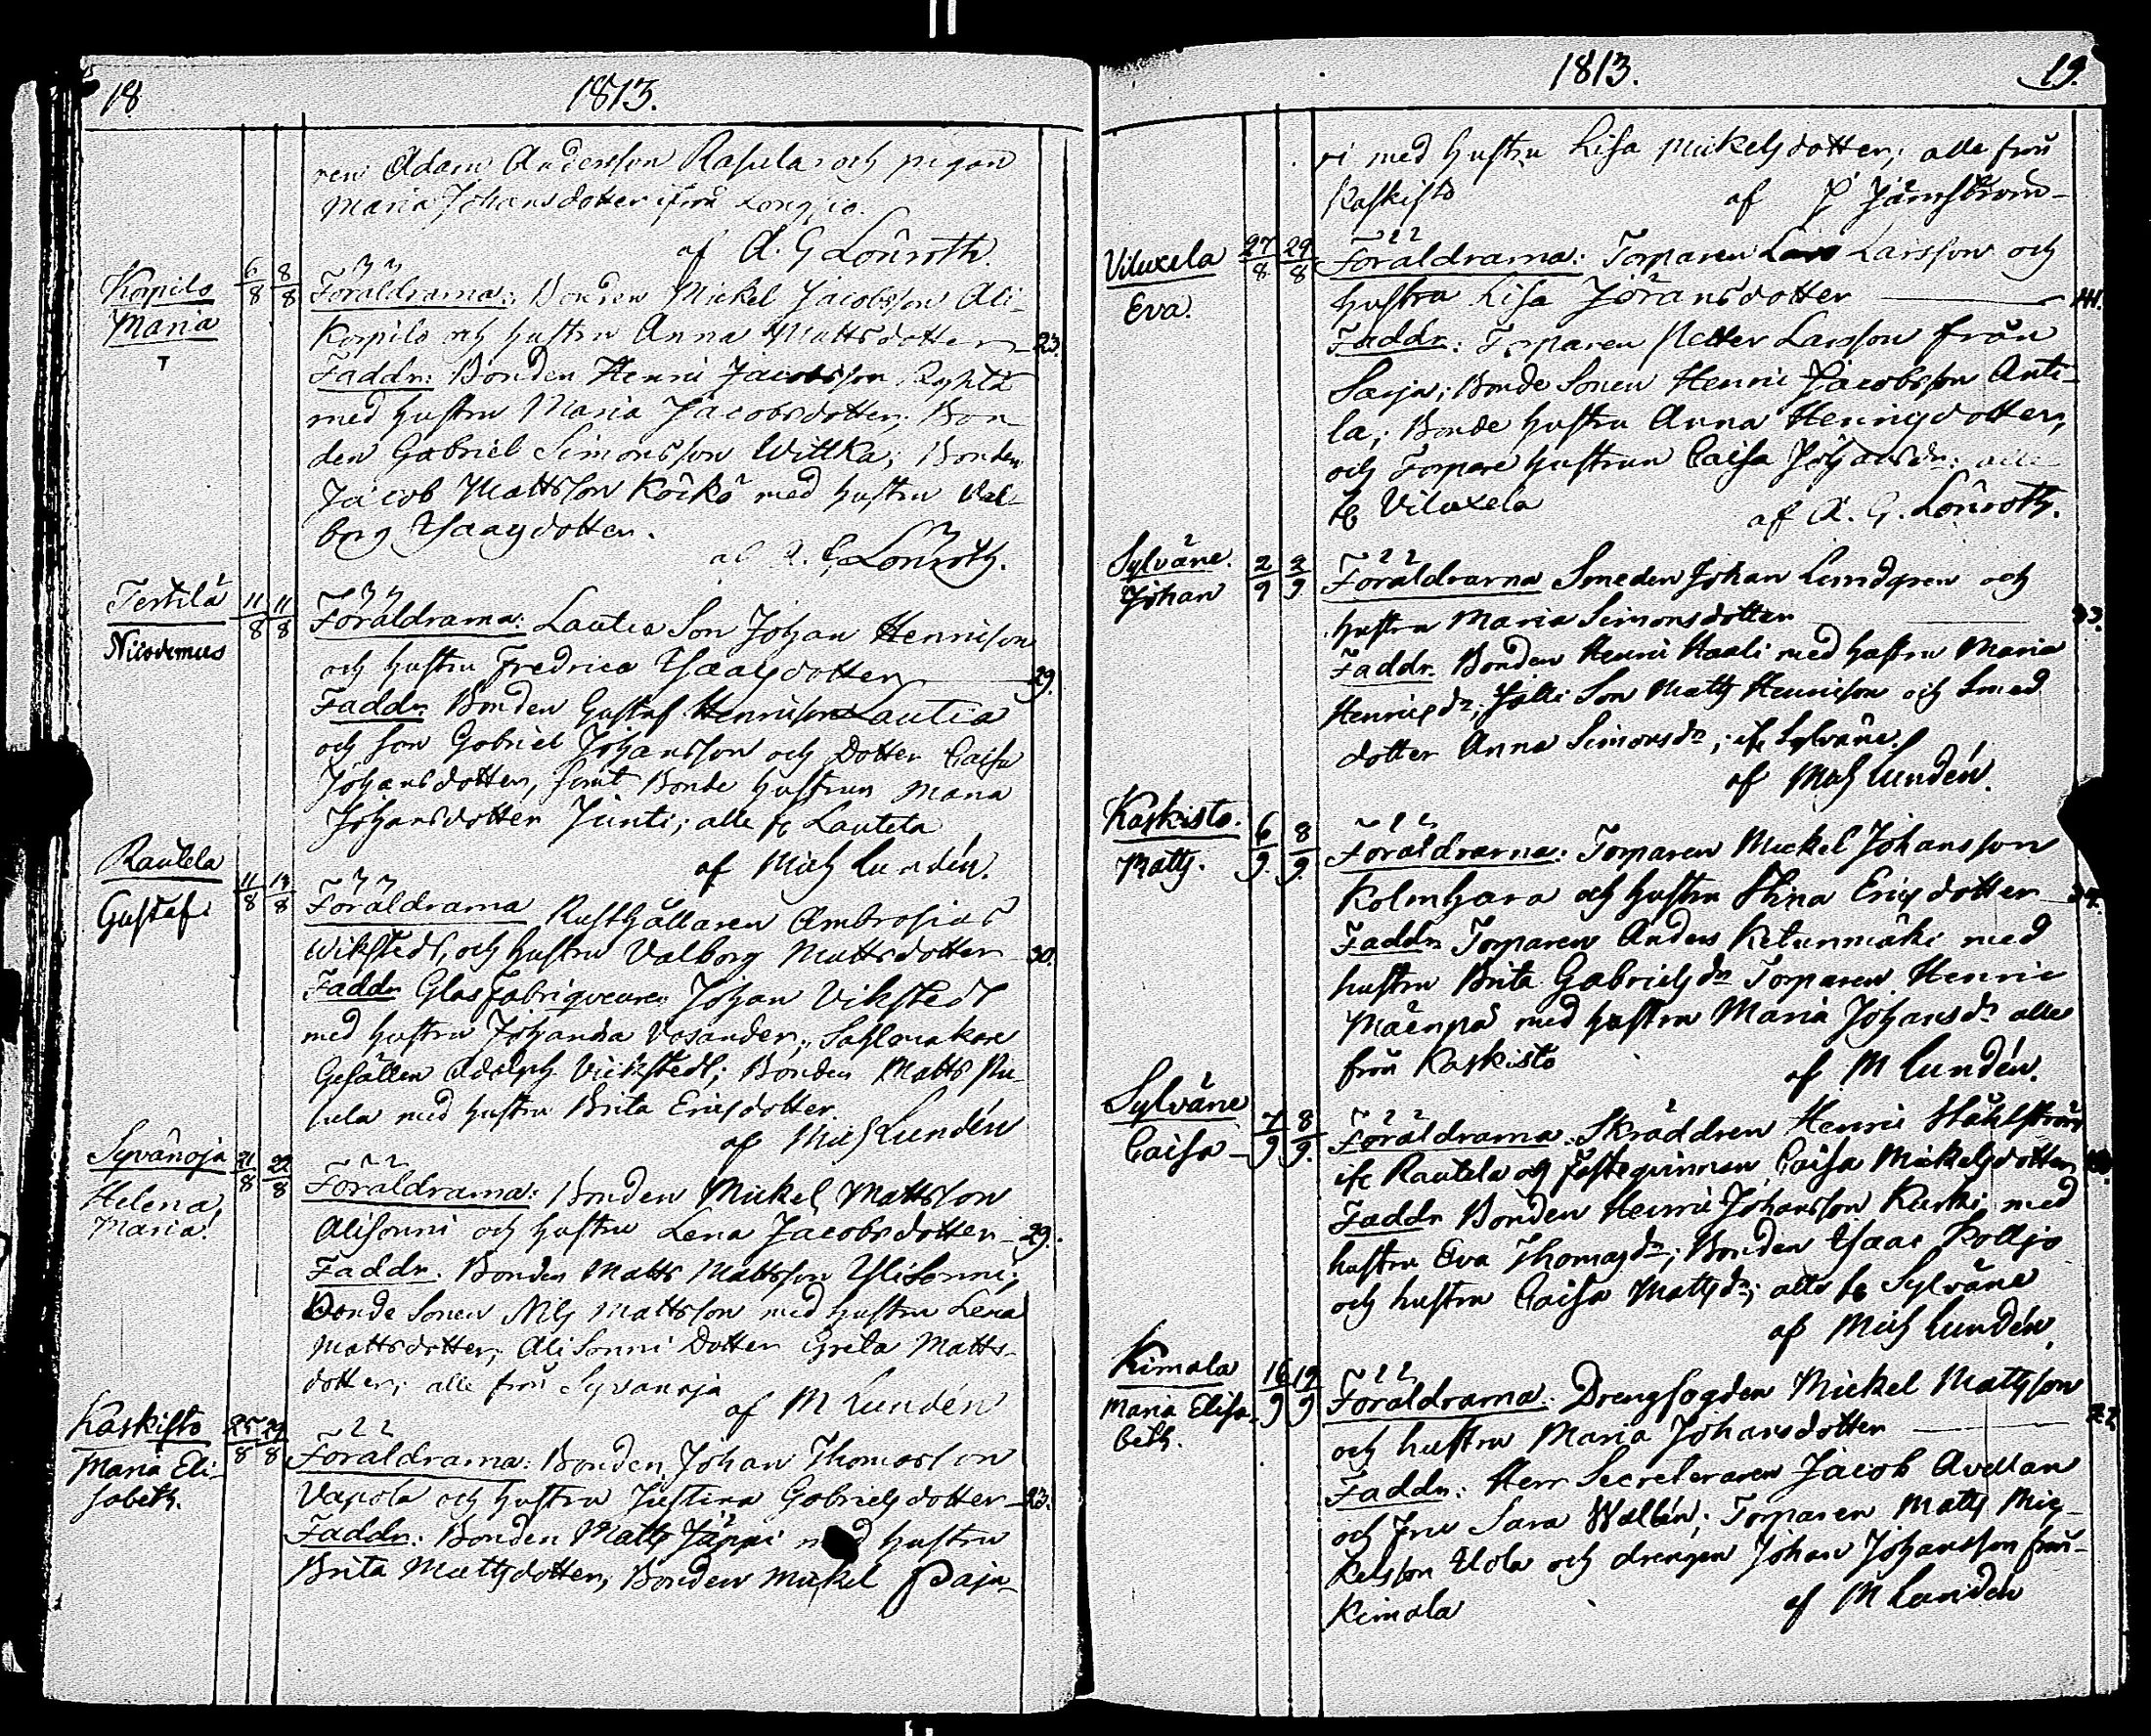 18.
1813.
ren Adam Andersson Rasula och pigan
Maria Johansdotter ifrån
af A. G Lönroth.
Korpilo
Maria
6/8 8/8
Föräldrarna: Bonden Mickel Jacobsson Ali-
Korpilo och hustru Anna Mattsdotter 23.
Faddr: Bonden Henric Jacobsson
med hustru Maria Jacobsdotter, Bon-
den Gabriel Simonsson Wittka; Bonden
Jacob Mattsson Köckö med hustru Val-
borg Ysaagsdotter.
af A. G Lönroth.
Tertilä
Nicodemus
11/8 11/8
Föräldrarna: Lautia Son Johan Henricson
och hustru Fredrica Ysaacsdotter 29.
Faddr. Bonden Gustaf Henricson Lautia
och son Gabriel Johansson och Dotter Caisa
Johansdotter, samt Bonde hustrun Maria
Johansdotter Junti; alle fr Lautela
af Mich Lundén.
Rautela
Gustaf.
11/8 13/8
Föräldrarna Rusthållaren Ambrosius
Wikstedt, och hustru Valborg Mattsdotter 30.
Faddr Glasfabriqveuren Johan Vikstedt
med hustru Johanna Vosander; Sahlmakare
Gesällen Adolph Vickstedt; Bonden Matts Ru-
hala med hustru Brita Ericsdotter.
af Mich Lundén
Syvänoja
Helena
Maria.
21/8 22/8
Föräldrarna: Bonden Mickel Mattsson
Alisonni och hustru Lena Jacobsdotter 29.
Faddr. Bonden Matts Mattsson Ylisonni;
Bonde Sonen Nils Mattsson med hustru Lena
Mattsdotter; Alisonni Dotter Greta Matts-
dotter; alle från Syvänoja
af M Lundén
Kaskisto
Maria Eli-
sabeth.
25/8 29/8
Föräldrarna: Bonden Johan Thomasson
Vapola och hustru Justina Gabrielsdotter 23.
Faddr: Bonden Matts Jäppi med hustru
Brita Mattsdotter, Bonden Mickel Paja-
1813.
19.
ri med hustru Lisa Mickelsdotter; alle från
Kaskisto
af P Järnström
Viluxela
Eva.
27/8 29/8
Föräldrarna: Torparen Lars Larsson och
hustru Lisa Jöransdotter 41.
Faddr: Torparen Petter Larsson från
Sarja; Bonde Sonen Henric Jacobsson Anti-
la; Bonde hustru Anna Henricsdotter,
och Torpare hustrun Caisa Johansdr: alle
fr Viluxela
af A. G. Lönroth.
Sylväne.
Johan
2/9 2/9
Föräldrarna Smeden Johan Lundgren och
hustru Maria Simonsdotter 33.
Faddr. Bonden Henric Haali med hustru Maria
Henricsdr; Jälli Son Matts Henricson och Smed
dotter Anna Simonsdr; ifr Sylväne.
af Mich Lundén.
Kaskisto.
Matts.
6/9 8/9
Föräldrarna: Torparen Mickel Johansson
Kolmhara och hustru Stina Ericsdotter 34.
Faddr Torparen Anders Ketunmäki med
hustru Brita Gabrielsdr Torparen Henric
Mäenpä med hustru Maria Johansdr alle
från Kaskisto
af M Lundén.
Sylväne
Caisa
7/9 8/9
Föräldrarna: Skräddren Henric Ståhlström
ifr Rautela och Fästeqvinnan Caisa Mickelsdotter
Faddr Bonden Henric Johansson Kurki med
hustru Eva Thomasdr; Bonden Ysaac Polljo
och hustru Caisa Mattsdr; alla fr Sylväne
af Mich Lundén.
Kimala
Maria Elisa-
beth.
16/9 19/9
Föräldrarna: Drengfogden Mickel Mattsson
och hustru Maria Johansdotter
Faddr: Herr Secreteraren Jacob Avellan
och Fru Sara Wallén; Torparen Matts Mic-
kelsson Uola och drengen Johan Johansson från
Kimala
af M Lundén